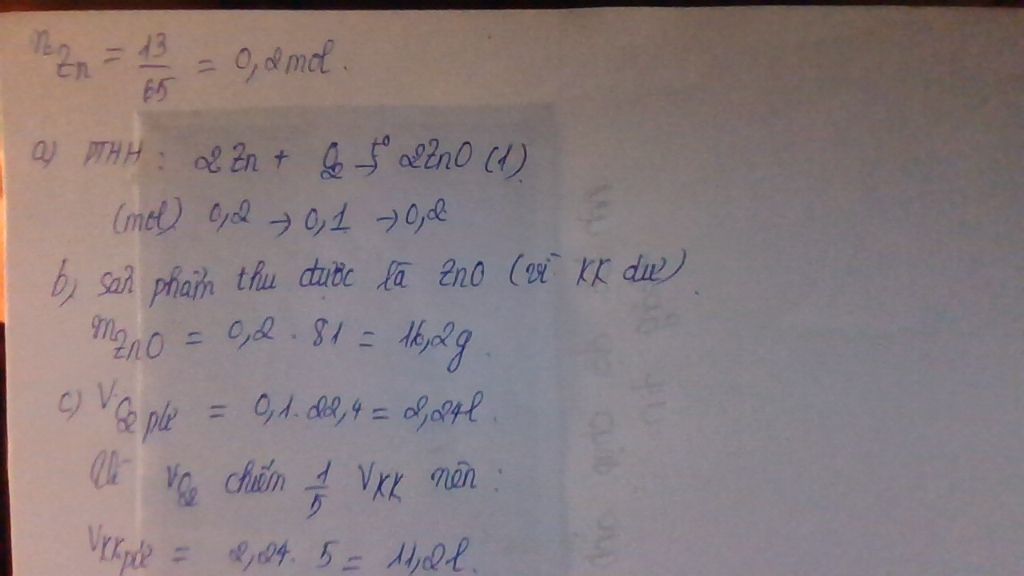 nZn = 13/65 = 0,2 mol.
a) PTHH: 2Zn + O2 -t°-> 2ZnO (1)
(mol) 0,2 → 0,1 → 0,2
b) sản phẩm thu được là ZnO (vì KK dư).
mZnO = 0,2 . 81 = 16,2g.
c) VO2 pứ = 0,1.22,4 = 2,24l.
Vì VO2 chiếm 1/5 VKK nên:
VKK pứ = 2,24. 5 = 11,2l.